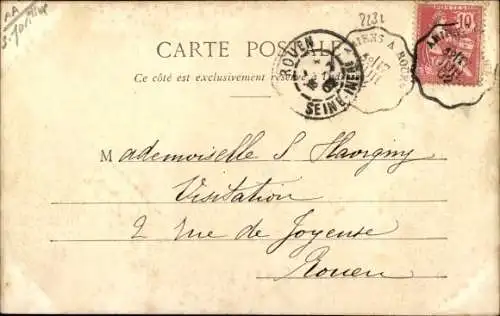 2231
10
CARTE POSTALE
Ce côté est exclusivement réservé à
ROUEN
SEINE-INFRE
AMIENS A ROUEN
Mademoiselle S Havigny
Visitation
2 Rue de Joyeuse
Rouen